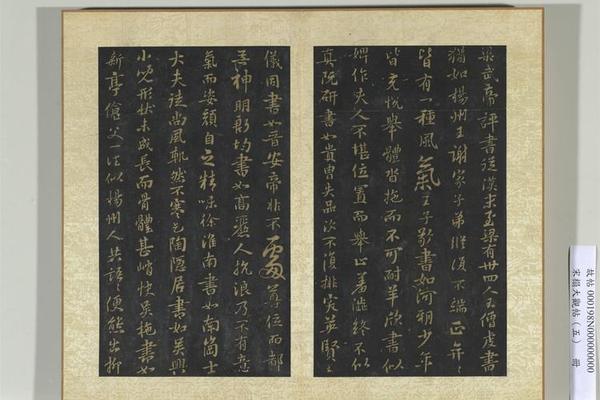 梁武帝評書從漢末至梁有卅四人王僧虔書
猶如揚州王謝家子弟縱復不端正奕奕
皆有一種風氣王子敬書如河朔少年
皆充悅舉體沓拖而不可耐羊欣書似
婢作夫人不堪位置而舉止羞澀終不似
真阮研書如貴胄失品次不復排突英賢王
儀同書如晉安帝非不處尊位而都
無神明殷鈞書如高麗人抗浪乃不有意
氣而姿顏自乏精味徐淮南書如南岡士
大夫徒尚風軌然不寒乞陶隱居書如吳興
小兒形狀未成長而骨體甚峭快吳施書如
新亭傖父一往似揚州人共語語便態出柳
故帖000198N000000000
宋搨大觀帖(五) 冊